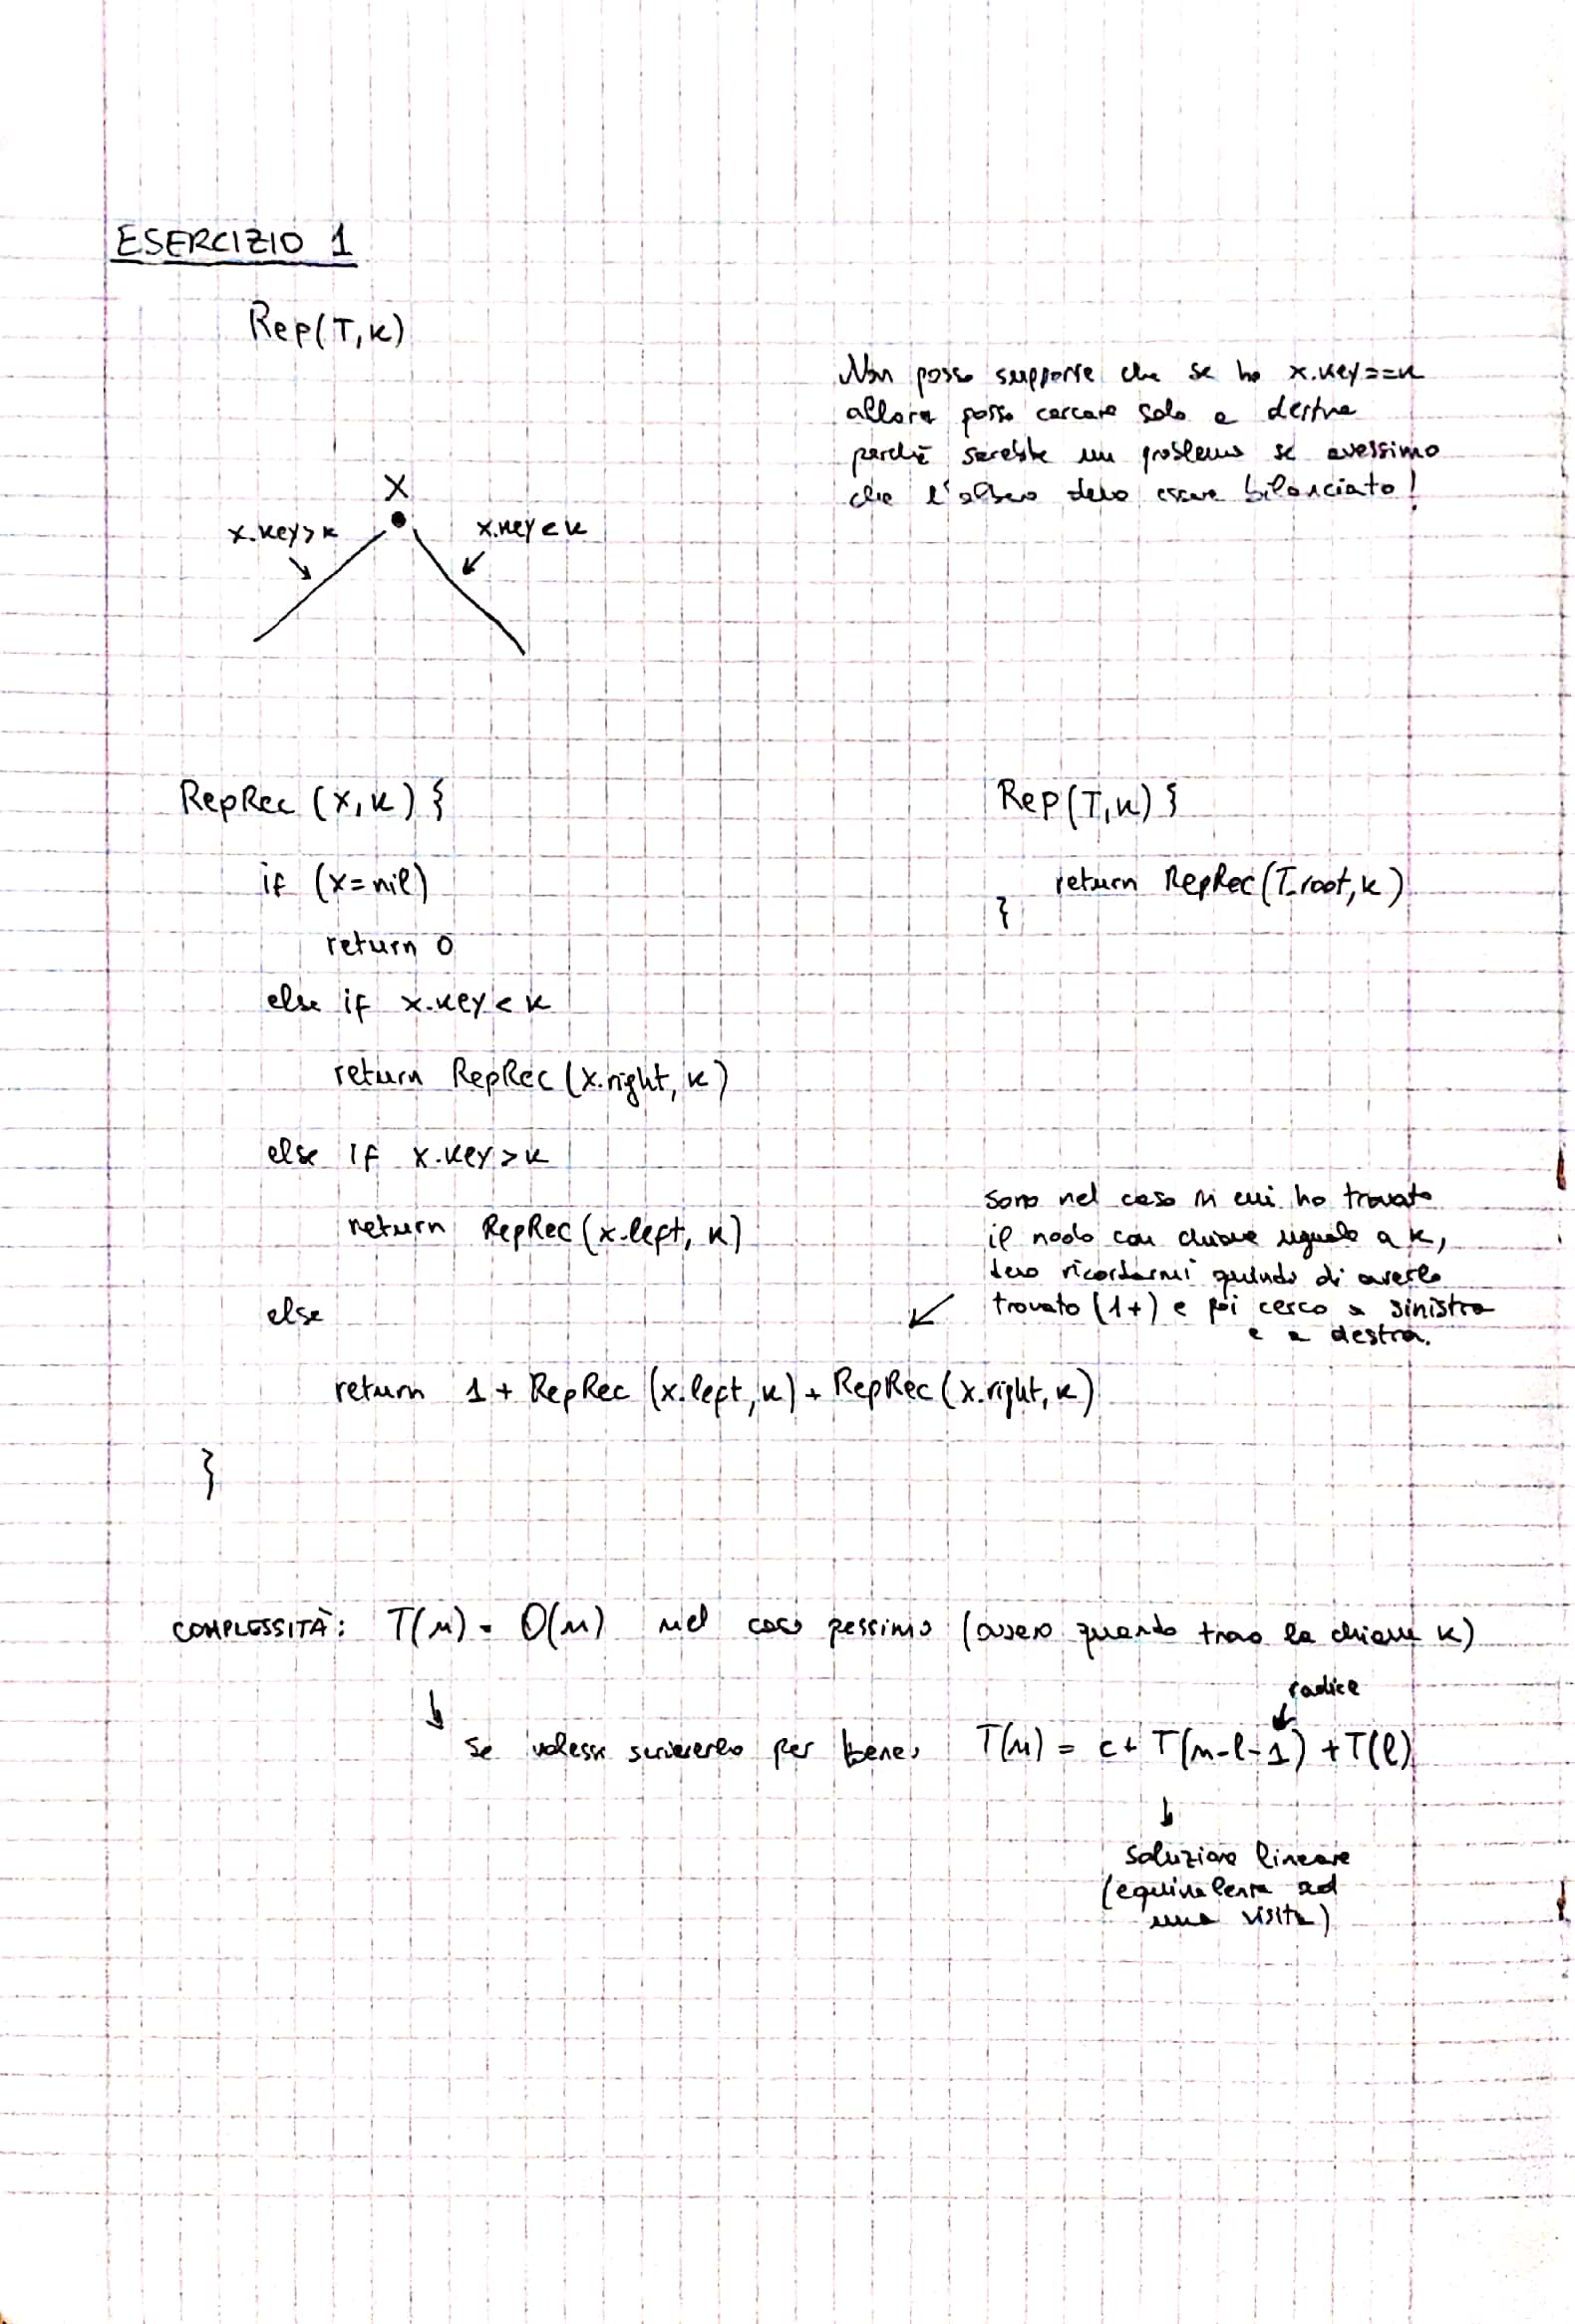 ESERCIZIO 1
Rep(T,k)
Non posso supporre che se ho x.key==k
allora posso cercare solo a destra
perchè sarebbe un problema se avessimo
che l'albero deve essere bilanciato!
X
x.key>k
x.key<k
RepRec (x,k) {
if (x=nil)
return 0
else if x.key<k
return RepRec (x.right, k)
else if x.key>k
return RepRec (x.left, k)
else
return 1 + RepRec (x.left, k) + RepRec (x.right, k)
}
Rep(T,k) {
return RepRec(T.root,k)
}
sono nel caso in cui ho trovato
il nodo con chiave uguale a k,
devo ricordarmi quindi di averlo
trovato (1+) e poi cerco a sinistra
e a destra.
COMPLESSITÀ: T(n) = O(n) nel caso pessimo (ovvero quando trovo la chiave k)
radice
se volessi scriverlo per bene, T(n) = c + T(n-l-1) + T(l)
soluzione lineare
(equivalente ad
una visita)